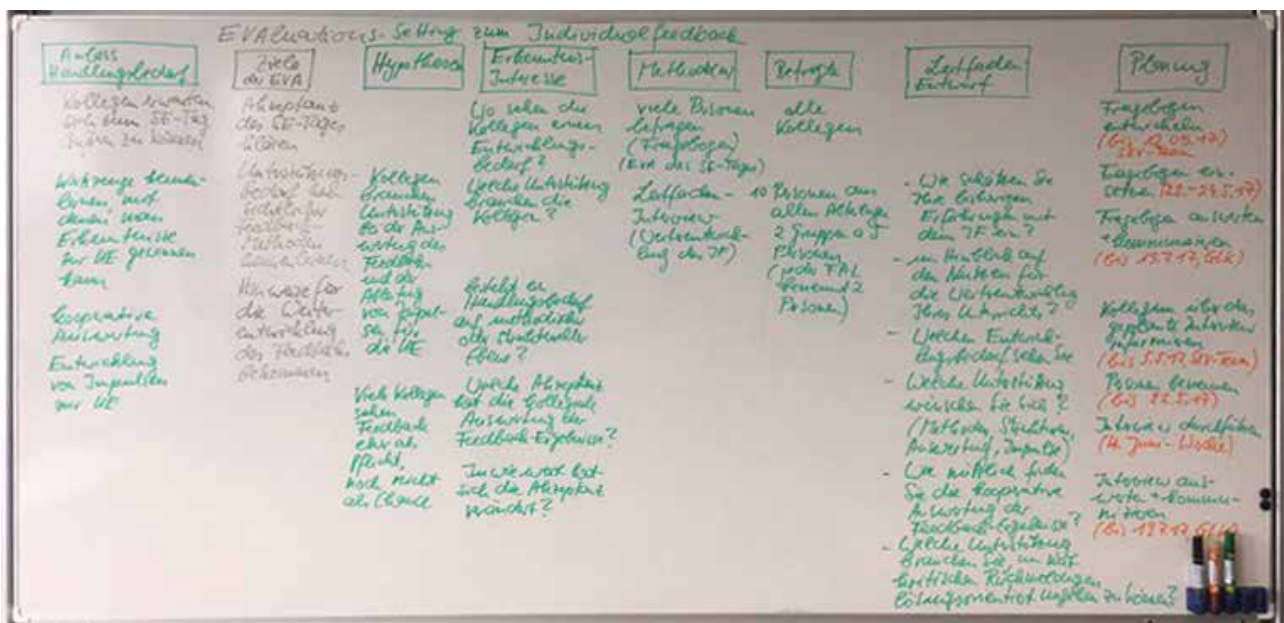 EVAluations-Setting zum Individualfeedback
Anlass
Handlungsbedarf
Kollegen erwarten
sich zum SE-Tag
äußern zu können
Werkzeuge kennen-
lernen mit
denen man
Erkenntnisse
zur UE gewinnen
kann
kooperative
Auswertung
Entwicklung
von Impulsen
zur UE
Ziele
der EVA
Akzeptanz
des SE-Tages
klären
Unterstützungs-
bedarf
Feedback-
Methoden
Hinweise für
die Weiter-
entwicklung
des Feedbacks
bekommen
Hypothesen
Kollegen
brauchen
Unterstützung
bei der Aus-
wertung des
Feedbacks
und der
Ableitung
von Impul-
sen für
die UE
Viele Kollegen
sehen
Feedback
eher als
Pflicht,
noch nicht
als Chance
Erkenntnis-
Interesse
Wo sehen die
Kollegen einen
Entwicklungs-
bedarf?
Welche Unterstützung
brauchen die
Kollegen?
Besteht ein
Handlungsbedarf
auf methodischer
oder struktureller
Ebene?
Welche Akzeptanz
hat die kollegiale
Auswertung der
Feedback-Ergebnisse?
Inwieweit hat
sich die Akzeptanz
verändert?
Methoden
viele Personen
befragen
(Fragebogen)
(EVA des SE-Tages)
Leitfaden-
Interview
(Weiterentwick-
lung des IF)
Befragte
alle
Kollegen
10 Personen aus
allen Abteilungen
2 Gruppen a 5
Personen
(jeder FAL
benennt 2
Personen)
Leitfaden
Entwurf
- Wie schätzen Sie
Ihre bisherigen
Erfahrungen mit
dem IF ein?
- im Hinblick auf
den Nutzen für
die Weiterentwicklung
Ihres Unterrichts?
- Welchen Entwick-
lungsbedarf sehen Sie
- Welche Unterstützung
wünschen Sie sich?
(Methoden, Strukturen,
Auswertung, Impulse)
- Wie nützlich finden
Sie die kooperative
Auswertung der
Feedback-Ergebnisse?
- Welche Unterstützung
brauchen Sie um mit
kritischen Rückmeldungen
lösungsorientiert umgehen zu können?
Planung
Fragebogen
entwickeln
(bis 12.05.17)
Fragebogen ein-
setzen (22.-24.5.17)
Fragebogen auswerten
+ kommunizieren
(bis 19.7.17, GLK)
Kollegium über das
geplante Interview
informieren
(bis 5.5.17 SEV-Team)
Personen benennen
(bis 22.5.17)
Interview durchführen
(4. Juni-Woche)
Interview aus-
werten + kommu-
nizieren
(bis 19.7.17, GLK)